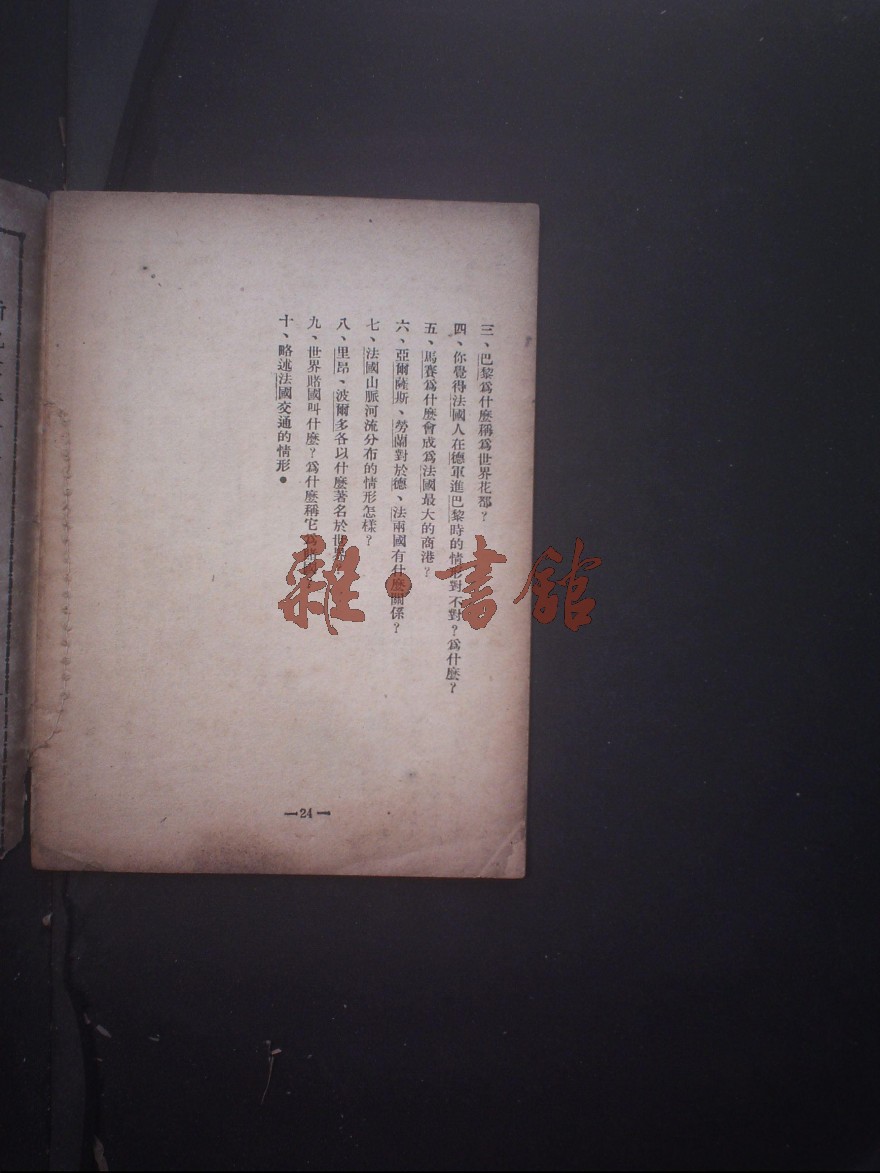 三、巴黎爲什麼稱爲世界花都？
四、你覺得法國人在德軍進巴黎時的情形對不對？爲什麼？
五、馬賽爲什麼會成爲法國最大的商港？
六、亞爾薩斯、勞蘭對於德、法兩國有什麼關係？
七、法國山脈河流分布的情形怎樣？
八、里昂、波爾多各以什麼著名於世界？
九、世界賭國叫什麼？爲什麼稱它爲賭國
十、略述法國交通的情形●
—24—
雜·書館